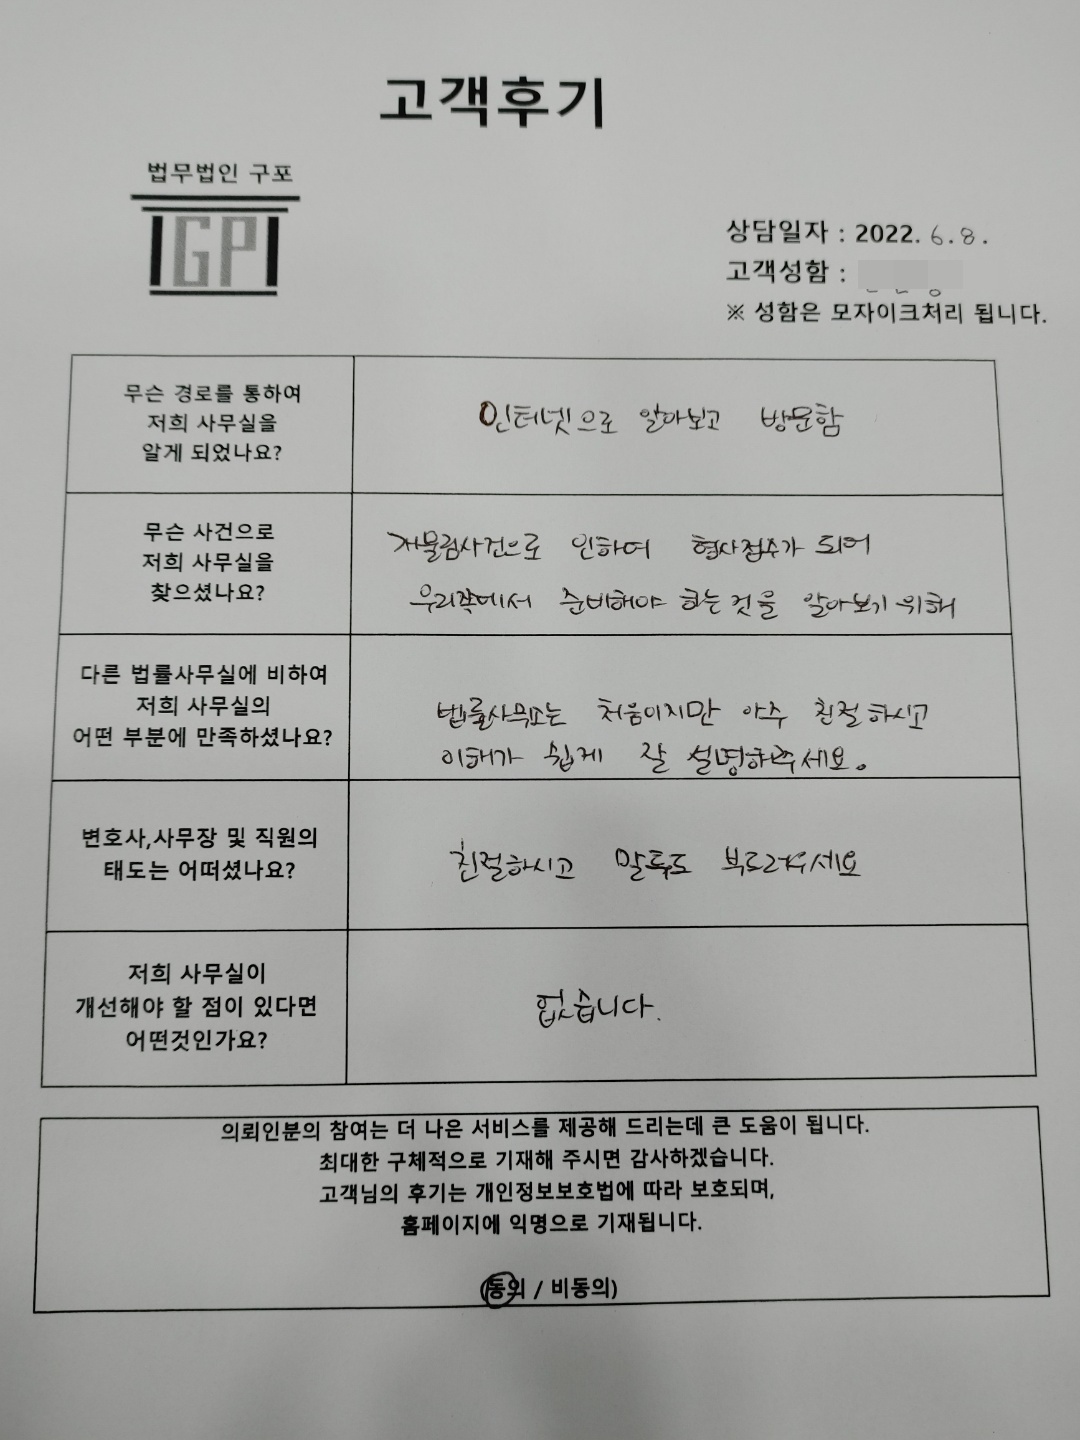 고객후기
법무법인 구포
GP
상담일자 : 2022. 6.8.
고객성함 :
※ 성함은 모자이크처리 됩니다.
무슨 경로를 통하여
저희 사무실을
알게 되었나요?
인터넷으로 알아보고 방문함
무슨 사건으로
저희 사무실을
찾으셨나요?
개물림사건으로 인하여 형사접수가 되어
우리쪽에서 준비해야 하는것을 알아보기 위해
다른 법률사무실에 비하여
저희 사무실의
어떤 부분에 만족하셨나요?
법률사무소는 처음이지만 아주 친절하시고
이해가 쉽게 잘 설명해주세요.
변호사,사무장 및 직원의
태도는 어떠셨나요?
친절하시고 말투도 부드러우세요
저희 사무실이
개선해야 할 점이 있다면
어떤것인가요?
없습니다.
의뢰인분의 참여는 더 나은 서비스를 제공해 드리는데 큰 도움이 됩니다.
최대한 구체적으로 기재해 주시면 감사하겠습니다.
고객님의 후기는 개인정보보호법에 따라 보호되며,
홈페이지에 익명으로 기재됩니다.
(동의 / 비동의)